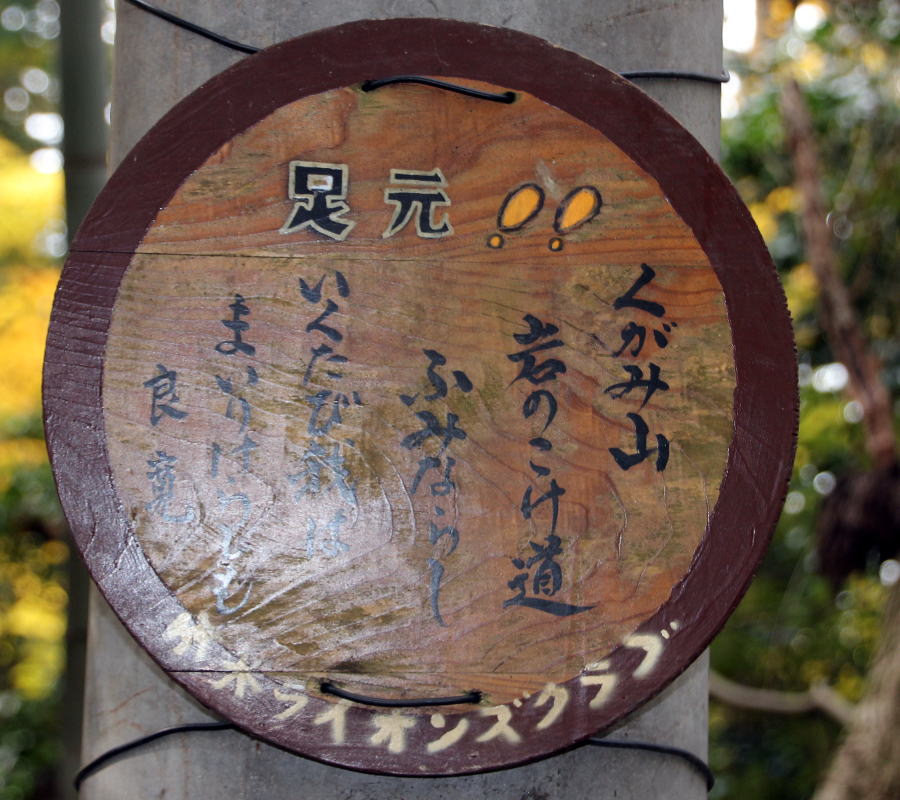 足元!!
くがみ山
岩のこけ道
ふみならし
いくたび我は
まいりけらしも
良寛
分水ライオンズクラブ